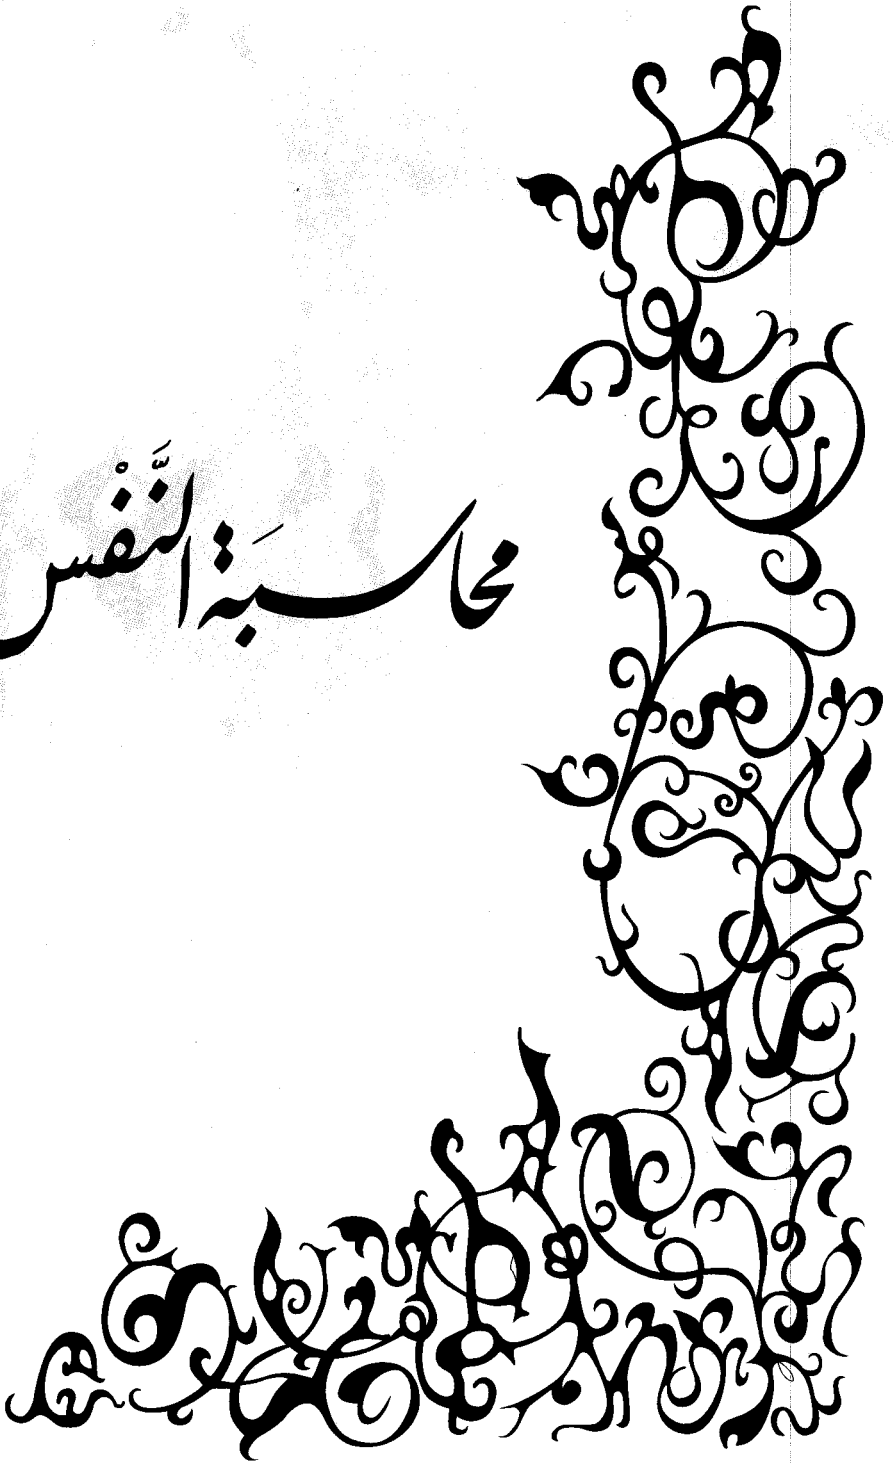 محاسبَة النَّفْس